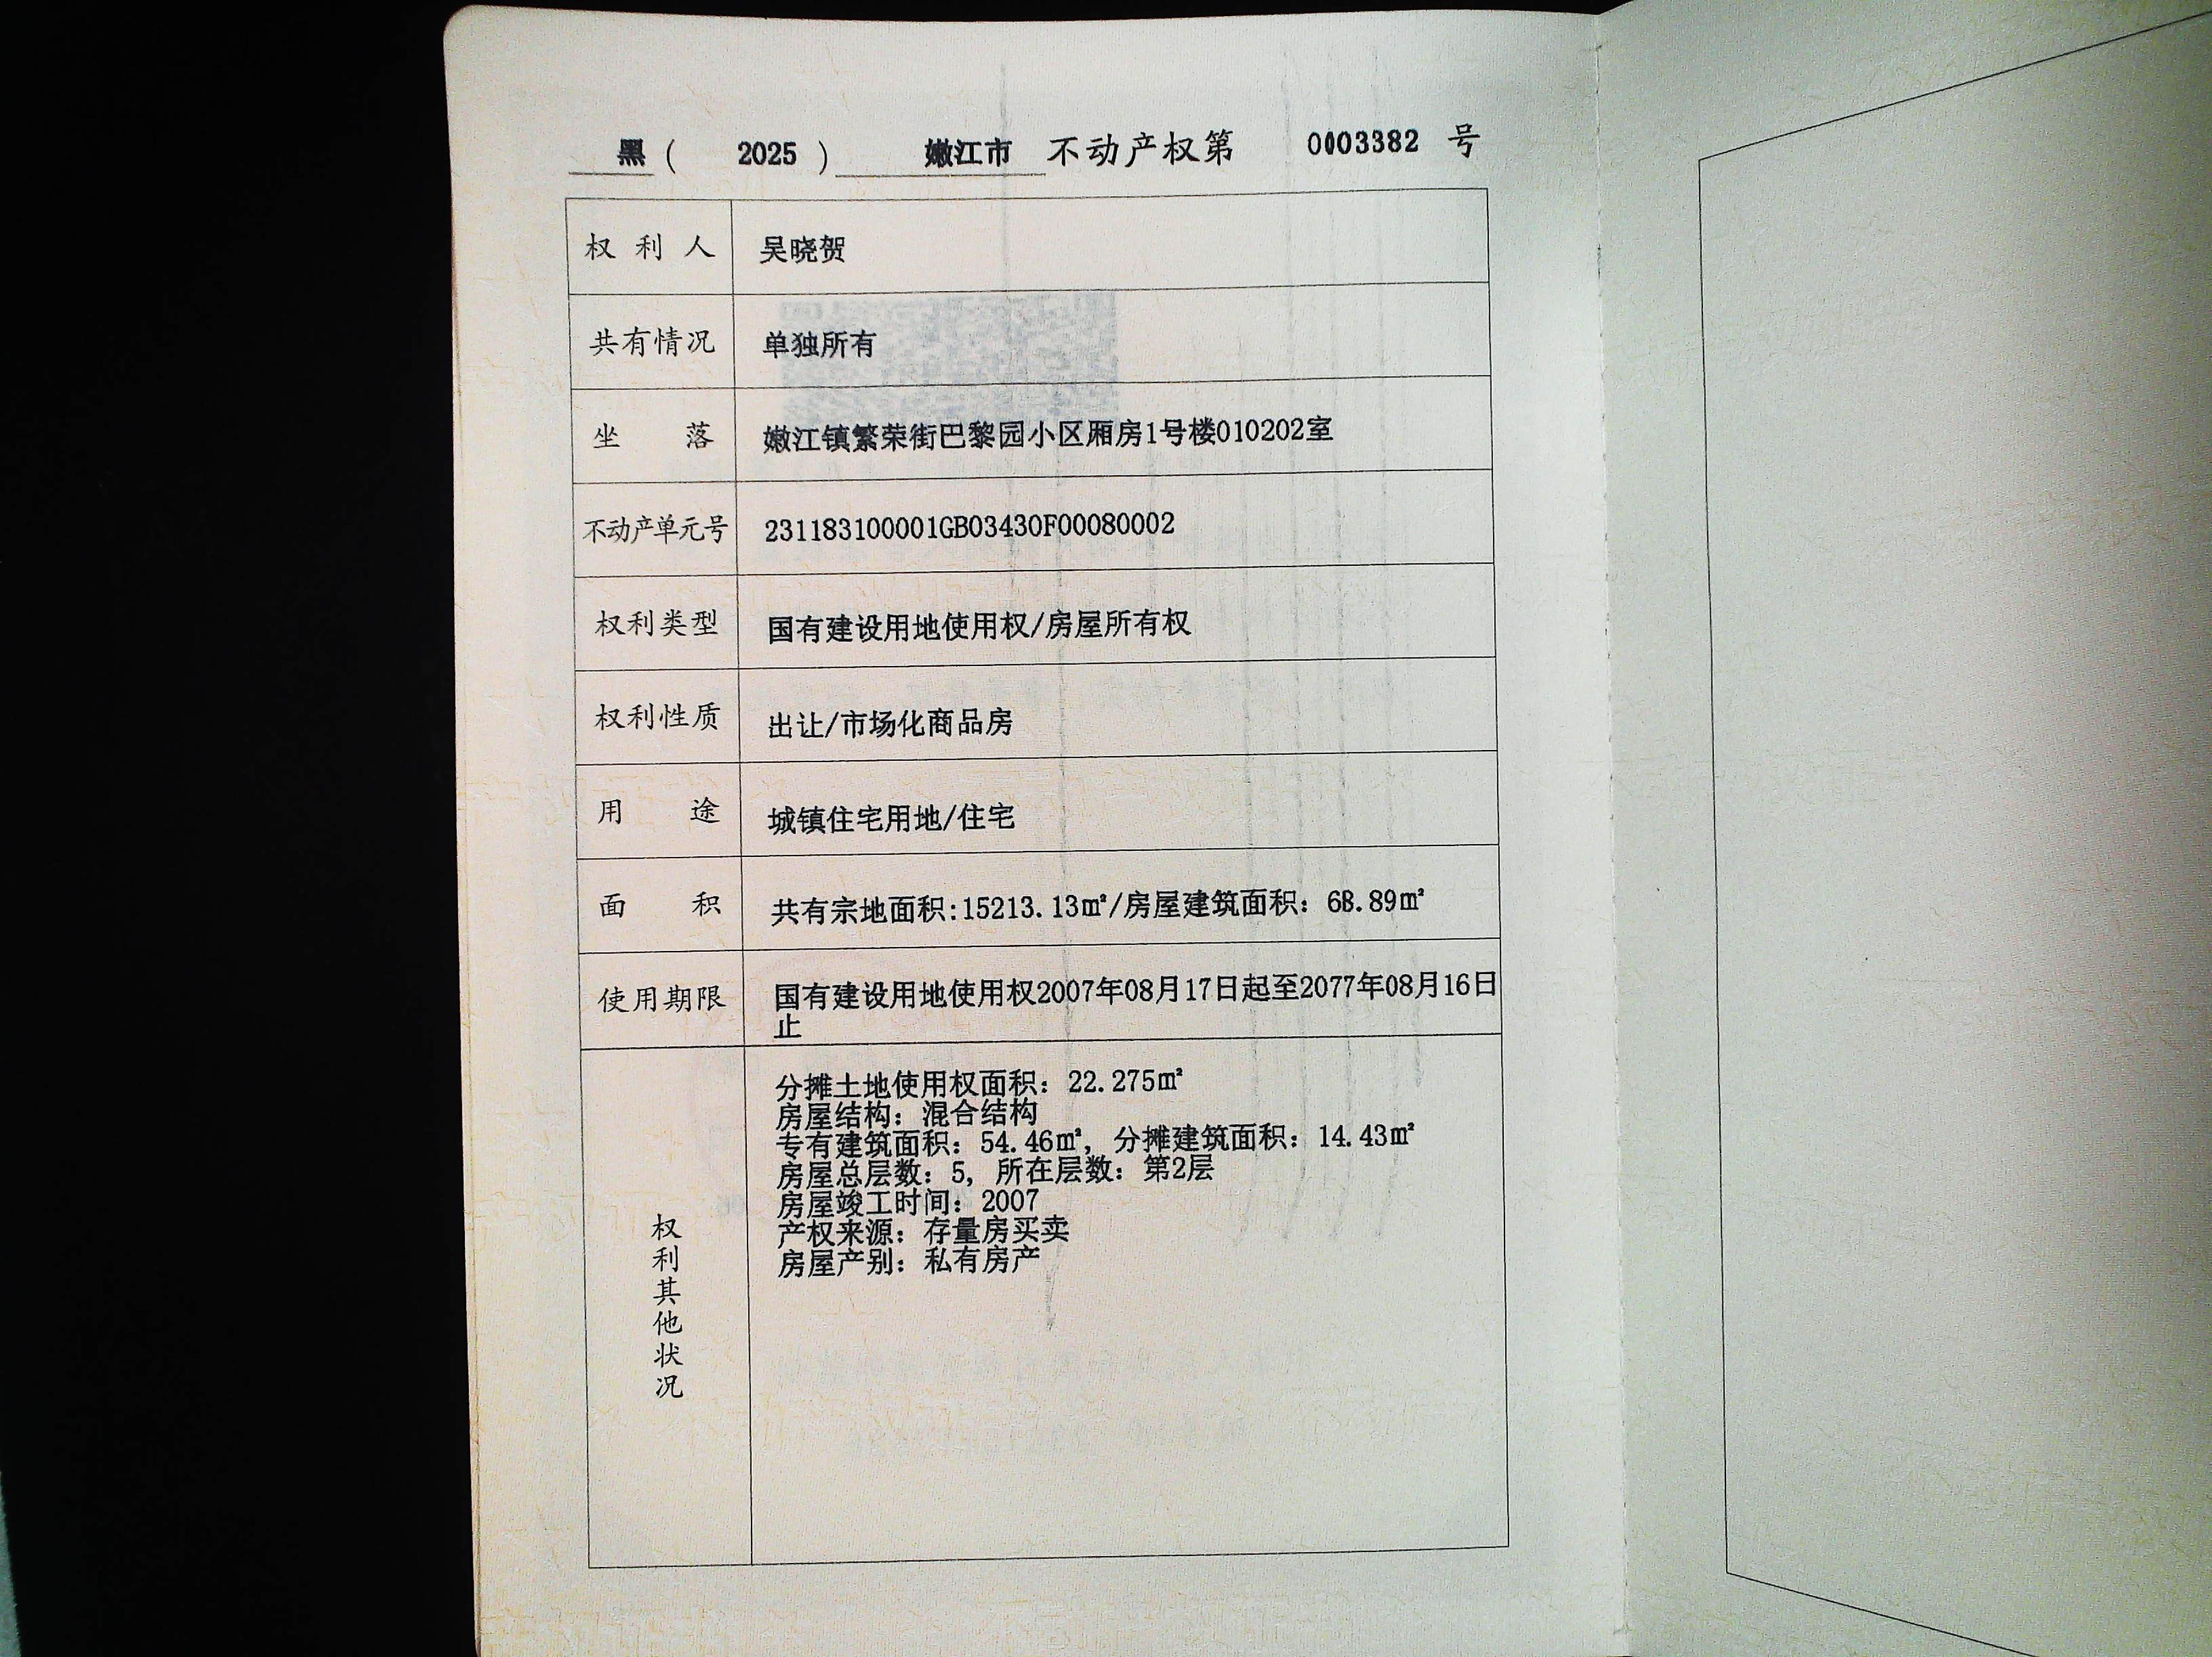 黑（ 2025 ） 嫩江市 不动产权第 0003382 号
权利人 吴晓贺
共有情况 单独所有
坐落 嫩江镇繁荣街巴黎园小区厢房1号楼010202室
不动产单元号 231183100001GB03430F00080002
权利类型 国有建设用地使用权/房屋所有权
权利性质 出让/市场化商品房
用途 城镇住宅用地/住宅
面积 共有宗地面积:15213.13㎡/房屋建筑面积：68.89㎡
使用期限 国有建设用地使用权2007年08月17日起至2077年08月16日
止
权利其他状况
分摊土地使用权面积：22.275㎡
房屋结构：混合结构
专有建筑面积：54.46㎡，分摊建筑面积：14.43㎡
房屋总层数：5，所在层数：第2层
房屋竣工时间：2007
产权来源：存量房买卖
房屋产别：私有房产